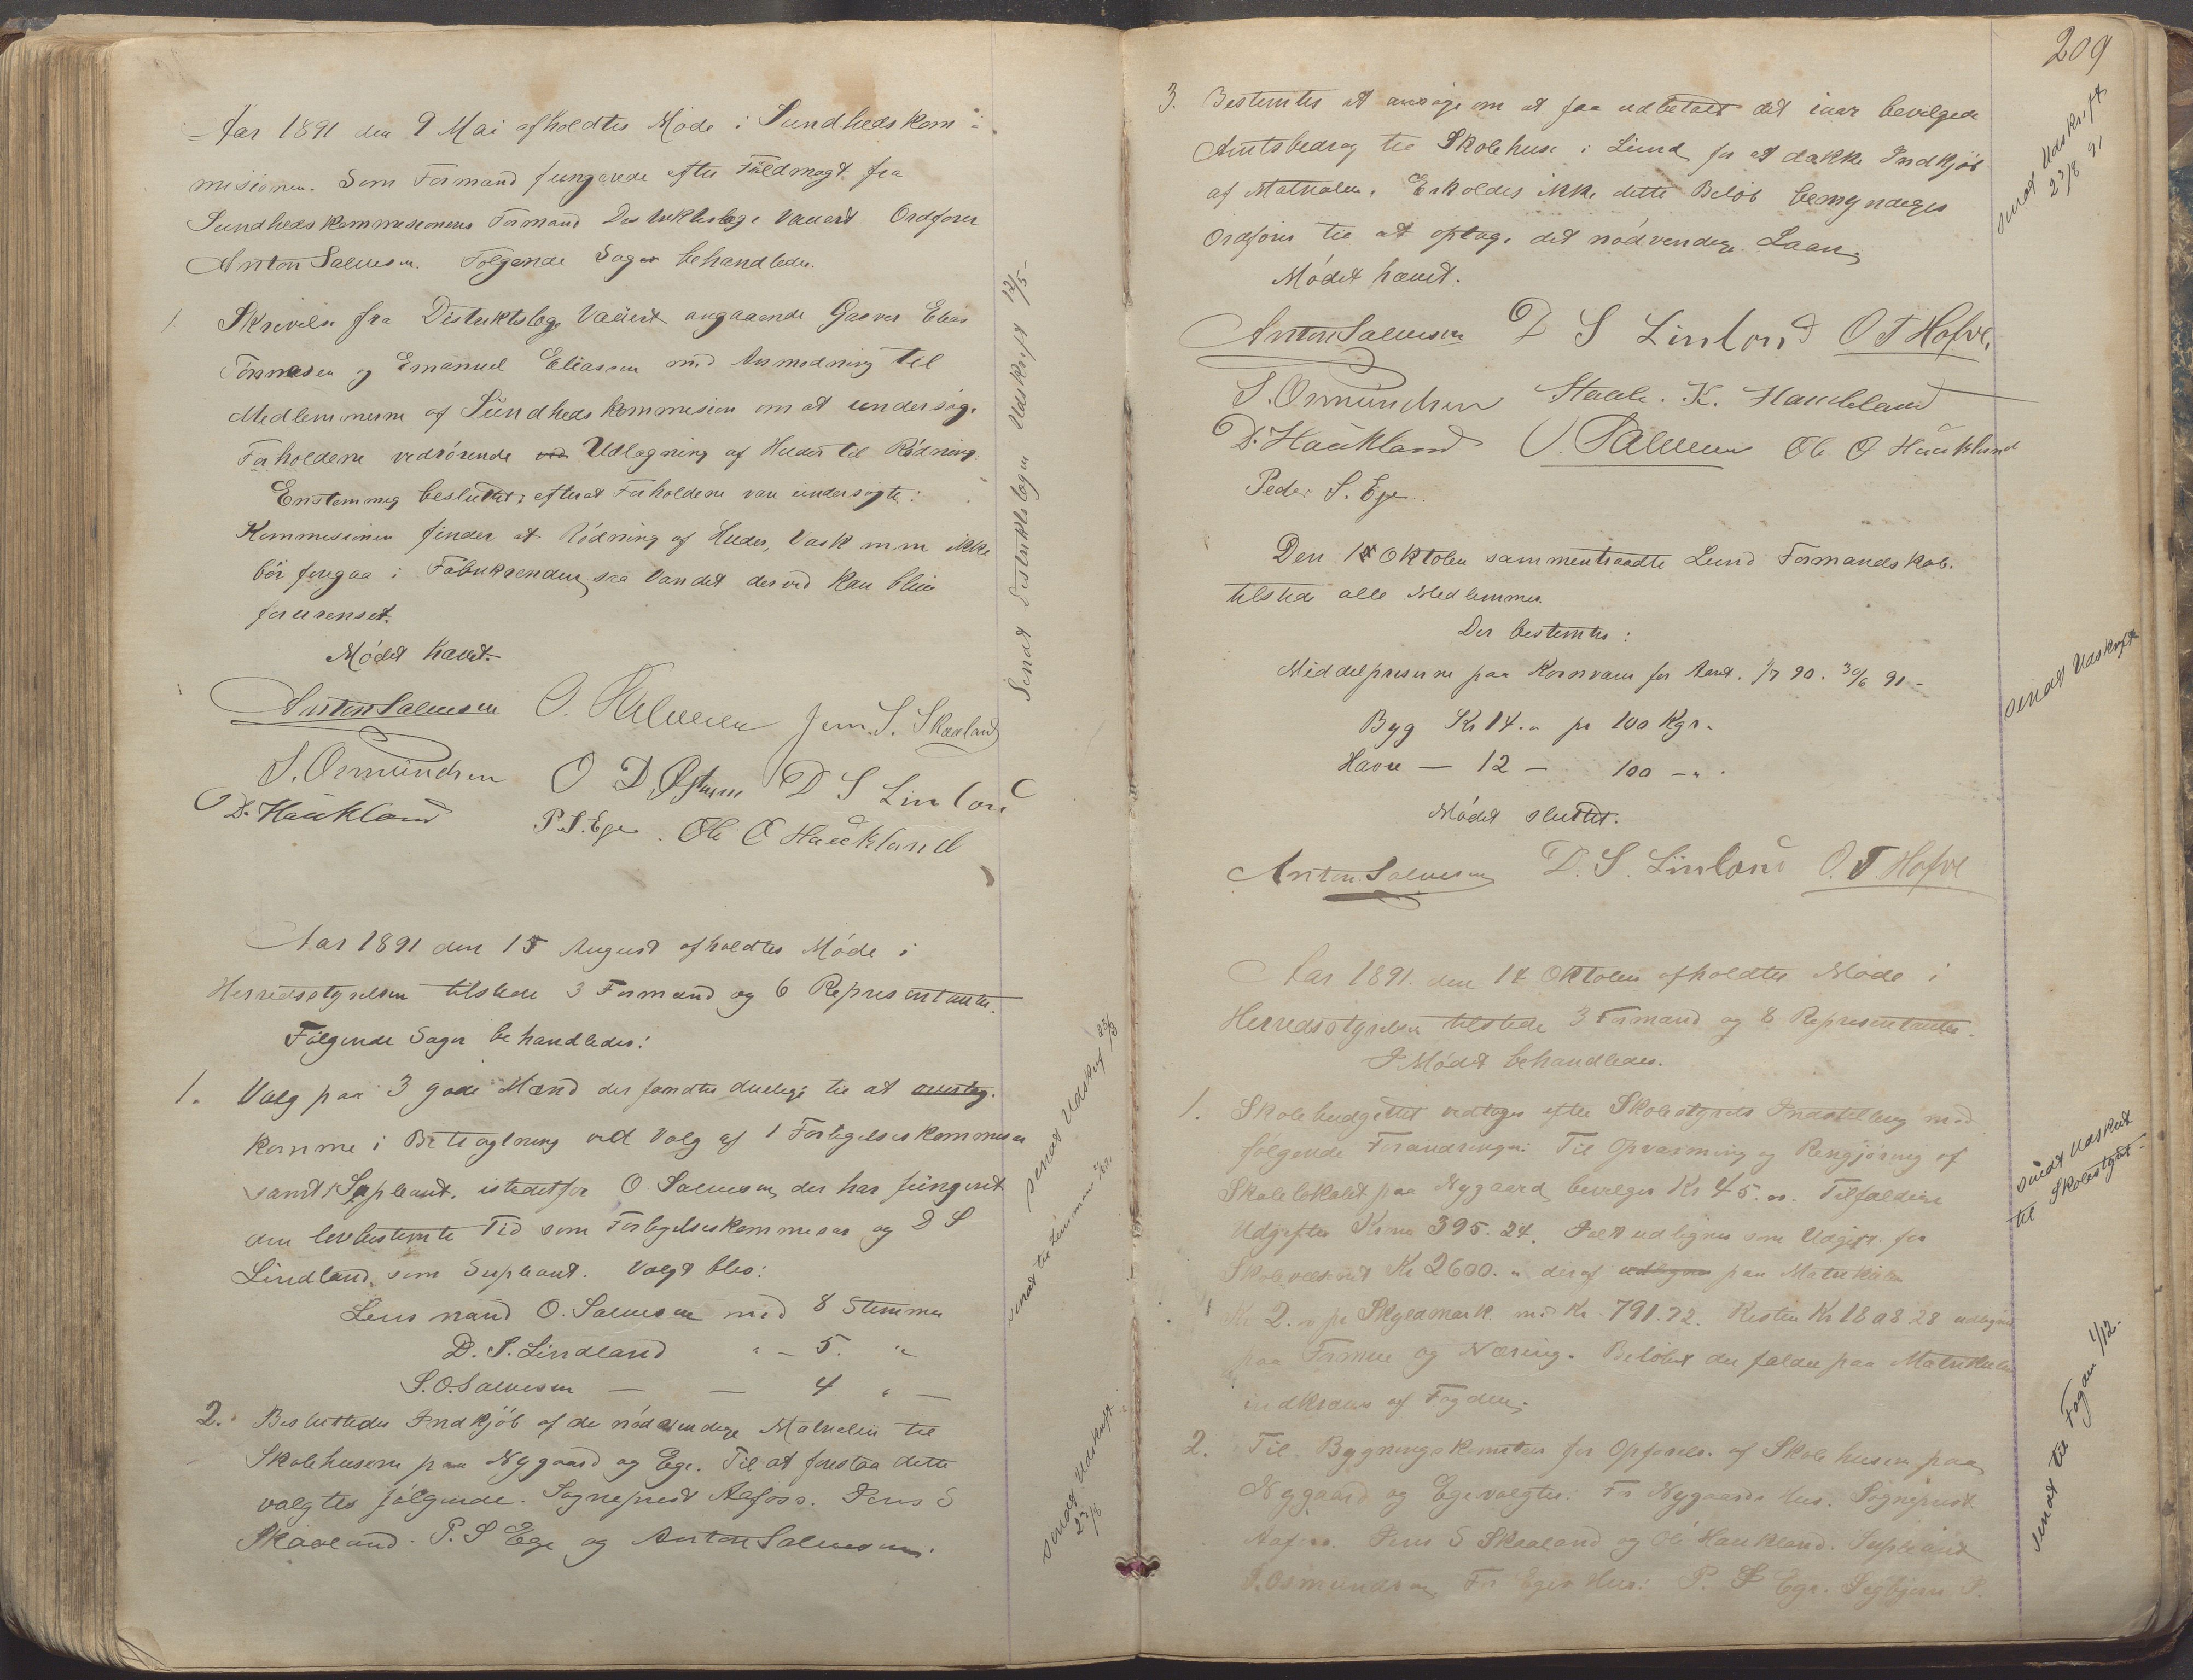 Aar 1891 den 9 Mai afholdtes Møde i Sundhedskom-
misionen. Som Formand fungerede efter Fuldmagt fra
Sundhedskommisionens Formand Distriktslæge Vauert Ordfører
Anton Salvesen. Følgende Sager behandledes.
1. Skrivelse fra Distriktslæge Vauert angaaende Garver Elias
Tønnesen og Emanuel Eliassen med Anmodning til
Medlemmerne af Sundhedskommision om at undersøge
Forholdene vedrørende ved Udlægning af Huder til Rødning.
Enstemmig besluttet, efterat Forholdene var undersøgte:
Kommisionen finder at Rødning af Huder, Vask m.m ikke
bør foregaa i Fabrikrenden, da Vandet derved kan blive
forurenset.
Mødet hævet.
Anton Salvesen O. Salvesen Jens. S. Skaaland
S. Osmundsen O D. D S Linland
D. Haukland P. S. Ege. Ole O Haukland
Sendt Distriktslægen Udskrift 12/5-
Aar 1891 den 15 August afholdtes Møde i
Herredsstyrelsen tilstede 3 Formænd og 6 Representanter.
Følgende Sager behandledes:
1. Valg paa 3 gode Mænd der fandtes duelige til at overtag.
komme i Betragtning ved Valg af 1 Forligelseskommisær
samt 1 Supleant. istedetfor O Salvesen, der har fungeret
den lovbestemte Tid som Forligelseskommisær og D S
Lindland, som Supleant. Valgt blev:
Lensmand O. Salvesen med 8 Stemmer
D. S. Lindland " - 5. "
S. O. Salvesen — — 4 " —
sendt Udskrift 23/8
2. Besluttedes Indkjøb af de nødvendige Materialier til
Skolehusene paa Nygaard og Ege. Til at forestaa dette
valgtes følgende. Sogneprest Aafoss. Jens S
Skaaland. P. S Ege og Anton Salvesen.
sendt Udskrift
23/8
209
3. Bestemtes at ansøge om at faa udbetalt det iaar bevilgede
Amtsbedrag til Skolehuse i Lund, for at dække Indkjøb
af Materialer. Erholdes ikke dette Beløb bemyndiges
Ordfører til at optage det nødvendige Laan.
Mødet hævet.
sendt Udskrift
23/8 91
Anton Salvesen D S Linland O T Hofve.
S. Osmundsen Staale. K. Haukland
D. Haukland O. Salvesen Ole O Haukland
Peder S. Ege.
Den 14 Oktober sammentraadte Lund Formandskab.
tilstede alle Medlemmer.
Der bestemtes:
Middelpriserne paa Kornvarer for Aaret. 1/7 90. 30/6 91 -
Byg Kr 14. " pr 100 Kgr.
Havre — 12 — 100 — " .
Mødet sluttet.
sendt Udskrift
Anton. Salvesen D. S. Linland O. T. Hofve
Aar 1891. den 14 Oktober afholdtes Møde i
Herredsstyrelsen tilstede 3 Formænd og 8 Representanter.
I Mødet behandledes.
1. Skolebudgettet vedtages efter Skolestyrets Indstilling med
følgende Forandringer: Til Opvarming og Rengjøring af
Skolelokalet paa Nygaard, bevilges Kr 45. oo. Tilfældige
Udgifter Kroner 395.24. Ialt udlignes som Udgift for
Skolevæsenet Kr 2600. " deraf udlignes paa Matrikulen
Kr 2. " pr Skyldmark med Kr. 791.72. Resten Kr 1808.28 udlignes
paa Formue og Næring. Beløbet der falder paa Matrikulen
indkræves af Fogden.
sendt Udskrift
til Skolestyret.
sendt til Fogden 1/12.
2. Til Bygningskomiteer for Opførelse af Skolehusene paa
Nygaard og Ege valgtes. For Nygaards Hus. Sogneprest
Aafoss. Jens S Skaaland og Ole Haukland. Supleant
S. Osmundsen, For Eges Hus: P. S Ege. Sigbjørn P.